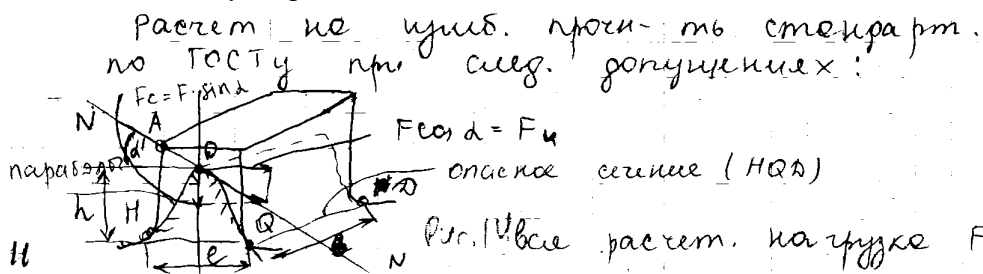 Расчет на изгиб. прочн-ть стандарт.
по ГОСТу при след. допущениях:
Fc = F·sinα
N A
α O Fcosα = Fи
парабола D опасное сечение (HQD)
h H Q
Рис. вся расчет. нагрузка F
e B N